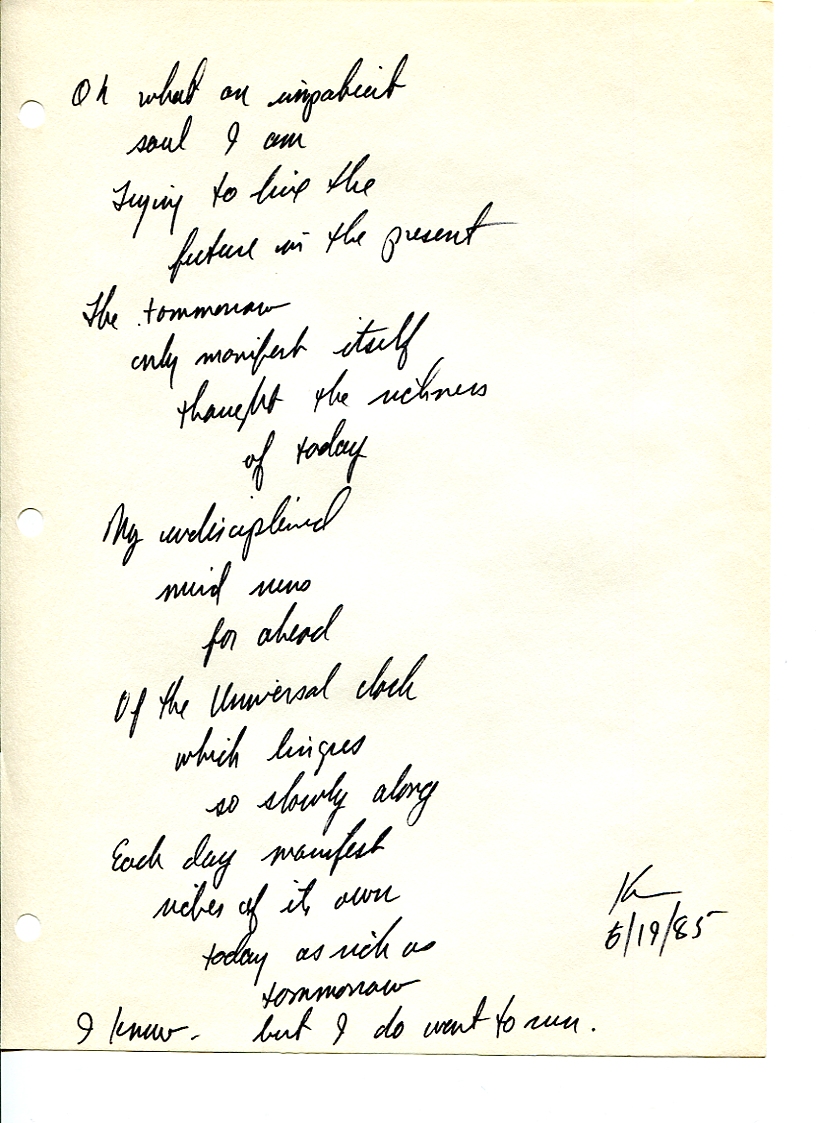 Oh what an impatient
soul I am
Trying to live the
future in the present
The tommorrow
only manifest itself
thought the richness
of today
My undisciplined
mind runs
far ahead
Of the Universal clock
which lingres
so slowly along
Each day manifest
riches of its own
today as rich as
tommorrow
I know. but I do want to run.
5/19/85